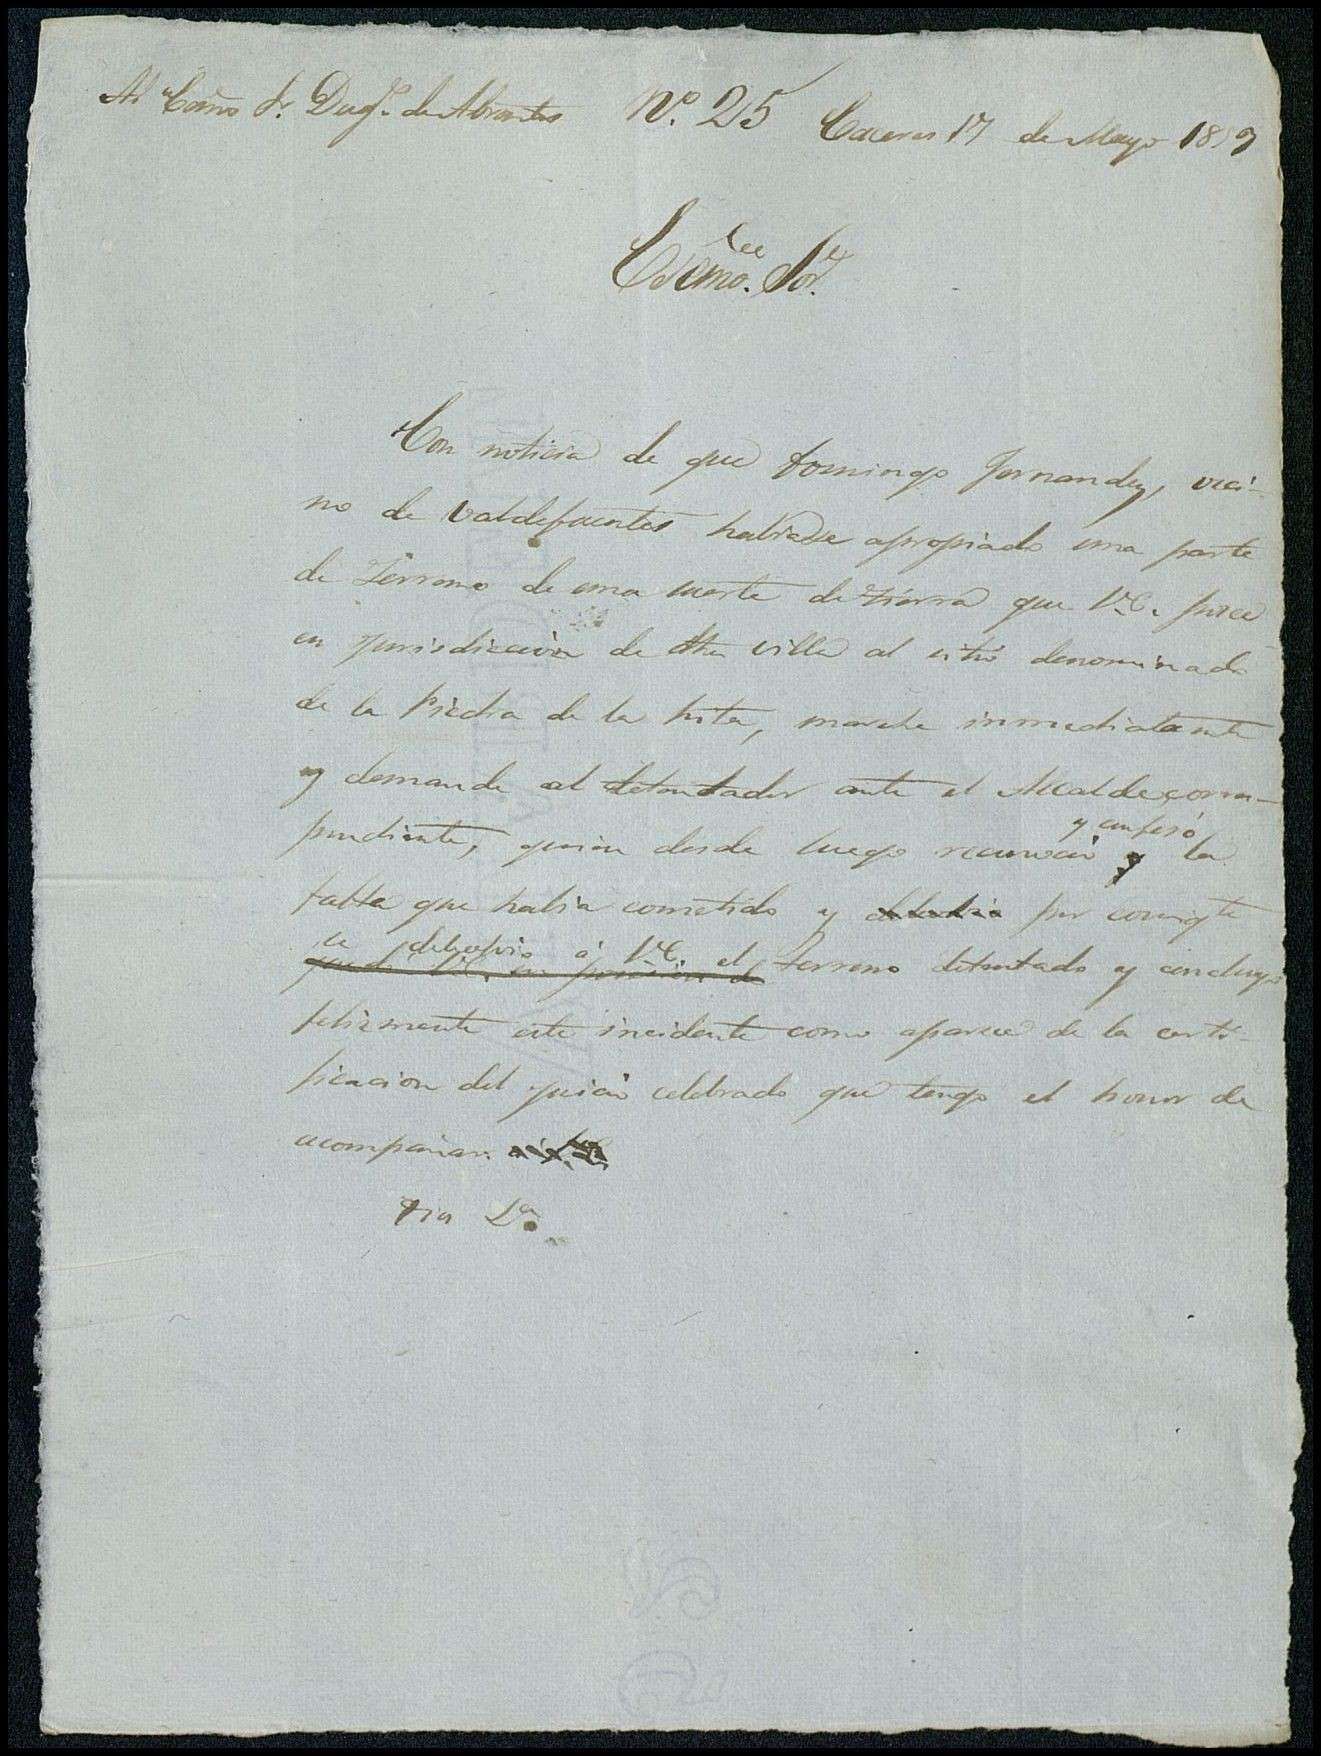 Al Exmo Sr. Duqe. de Abrantes Nº. 25 Caceres 17 de Mayo 1859
Exmo. Sor.
Con noticia de que Domingo Fernandez, veci-
no de Valdefuentes habiase apropiado una parte
de Terreno de una suerte de tierra que V.E. posee
en jurisdiccion de dha villa al sitio denominado
de la Piedra de la hita, marché inmediatamente
y demandé al detentador ante el Alcalde corres-
pondiente, quien desde luego reconoció y confesó la
falta que habia cometido y por consigte
se debolvio á V.E. el terreno detentado y concluyó
felizmente este incidente como aparece de la certi-
ficacion del juicio celebrado que tengo el honor de
acompañar.
Dios Lª